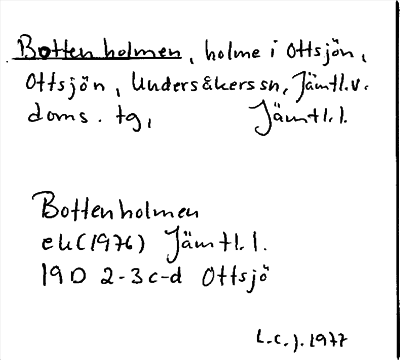 Bottenholmen, holme i Ottsjön,
Ottsjön, Undersåkers sn, Jämtl.v.
doms. tg, Jämtl.l.
Bottenholmen
ek(1976) Jämtl.l.
19D 2-3c-d Ottsjö
L.C.J. 1977